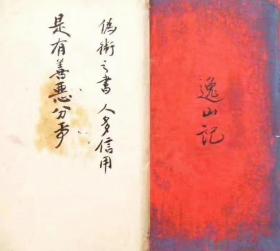 逸山记
偽術之書 人多信用
是有善惡分爭